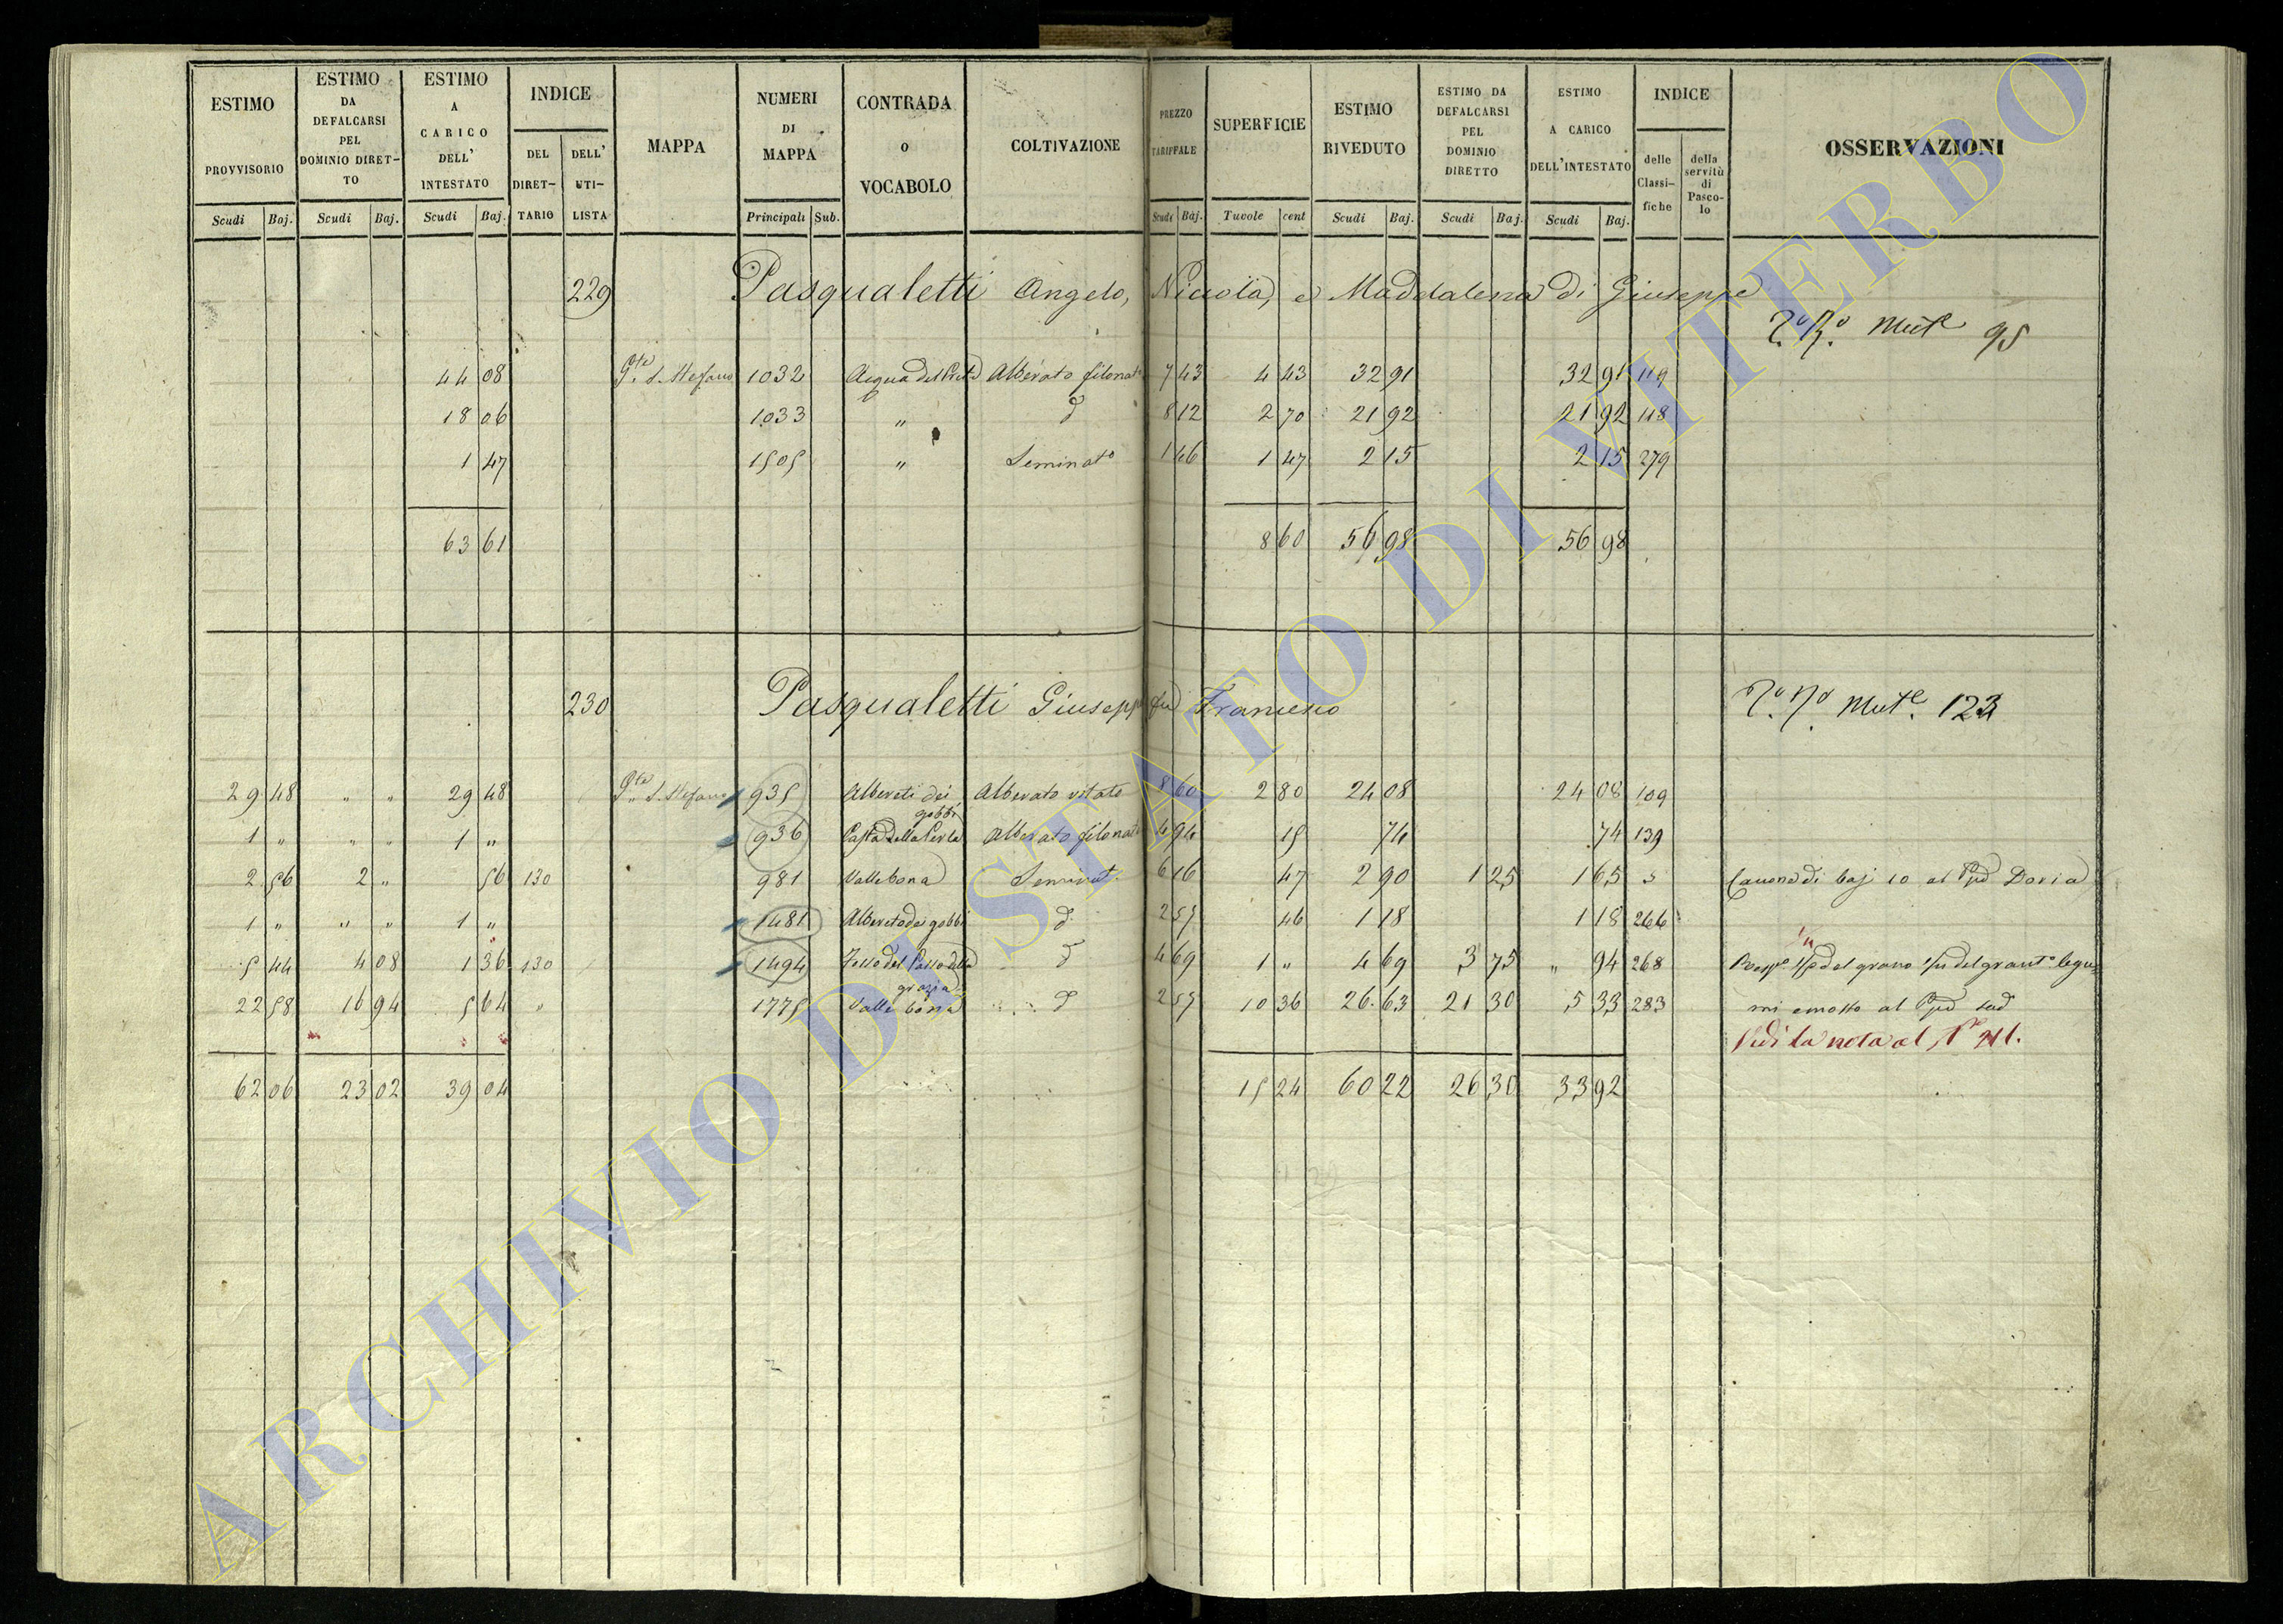 ESTIMO PROVVISORIO Scudi Baj.
ESTIMO DA DEFALCARSI PEL DOMINIO DIRET-TO Scudi Baj.
ESTIMO A CARICO DELL' INTESTATO Scudi Baj.
INDICE DEL DIRET-TARIO DELL' UTI-LISTA
MAPPA
NUMERI DI MAPPA Principali Sub.
CONTRADA O VOCABOLO
COLTIVAZIONE
PREZZO TARIFFALE Scudi Baj.
SUPERFICIE Tavole cent
ESTIMO RIVEDUTO Scudi Baj.
ESTIMO DA DEFALCARSI PEL DOMINIO DIRETTO Scudi Baj.
ESTIMO A CARICO DELL'INTESTATO Scudi Baj.
INDICE delle Classi-fiche della servitù di Pasco-lo
OSSERVAZIONI
229 Pasqualetti Angelo, Nicola, e Maddalena di Giuseppe
Mut.e 95
44 08 P.te S. Stefano 1032 Acqua del Alberato filonato 7 43 4 43 32 91 32 91 119
18 06 1033 " d 8 12 2 70 21 92 21 92 118
1 47 1505 " Seminato 1 46 1 47 2 15 2 15 279
63 61 8 60 56 98 56 98
230 Pasqualetti Giuseppe fu Francesco Mut.e 123
29 48 " " 29 48 P.te S. Stefano 935 Albereti dei gobbi Alberato vitato 8 60 2 80 24 08 24 08 109
1 " " " 1 " 936 Costa della Perla Alberato filonato 4 94 15 74 74 139
2 56 2 " 56 130 981 Vallebona Seminat. 6 16 47 2 90 1 25 1 65 5 Canone di baj 10 al Doria
1 " " " 1 " 1481 Albereto dei gobbi d 2 57 46 1 18 1 18 266
5 44 4 08 1 36 130 1494 Fosso del Passo della grazia d 4 69 1 " 4 69 3 75 " 94 268 del grano del grant.o legu
22 58 16 94 5 64 " 1775 Valle bona d 2 57 10 36 26 63 21 30 5 33 283 mi e mosto al
Vedi la nota al N.
62 06 23 02 39 04 15 24 60 22 26 30 33 92
ARCHIVIO DI STATO DI VITERBO